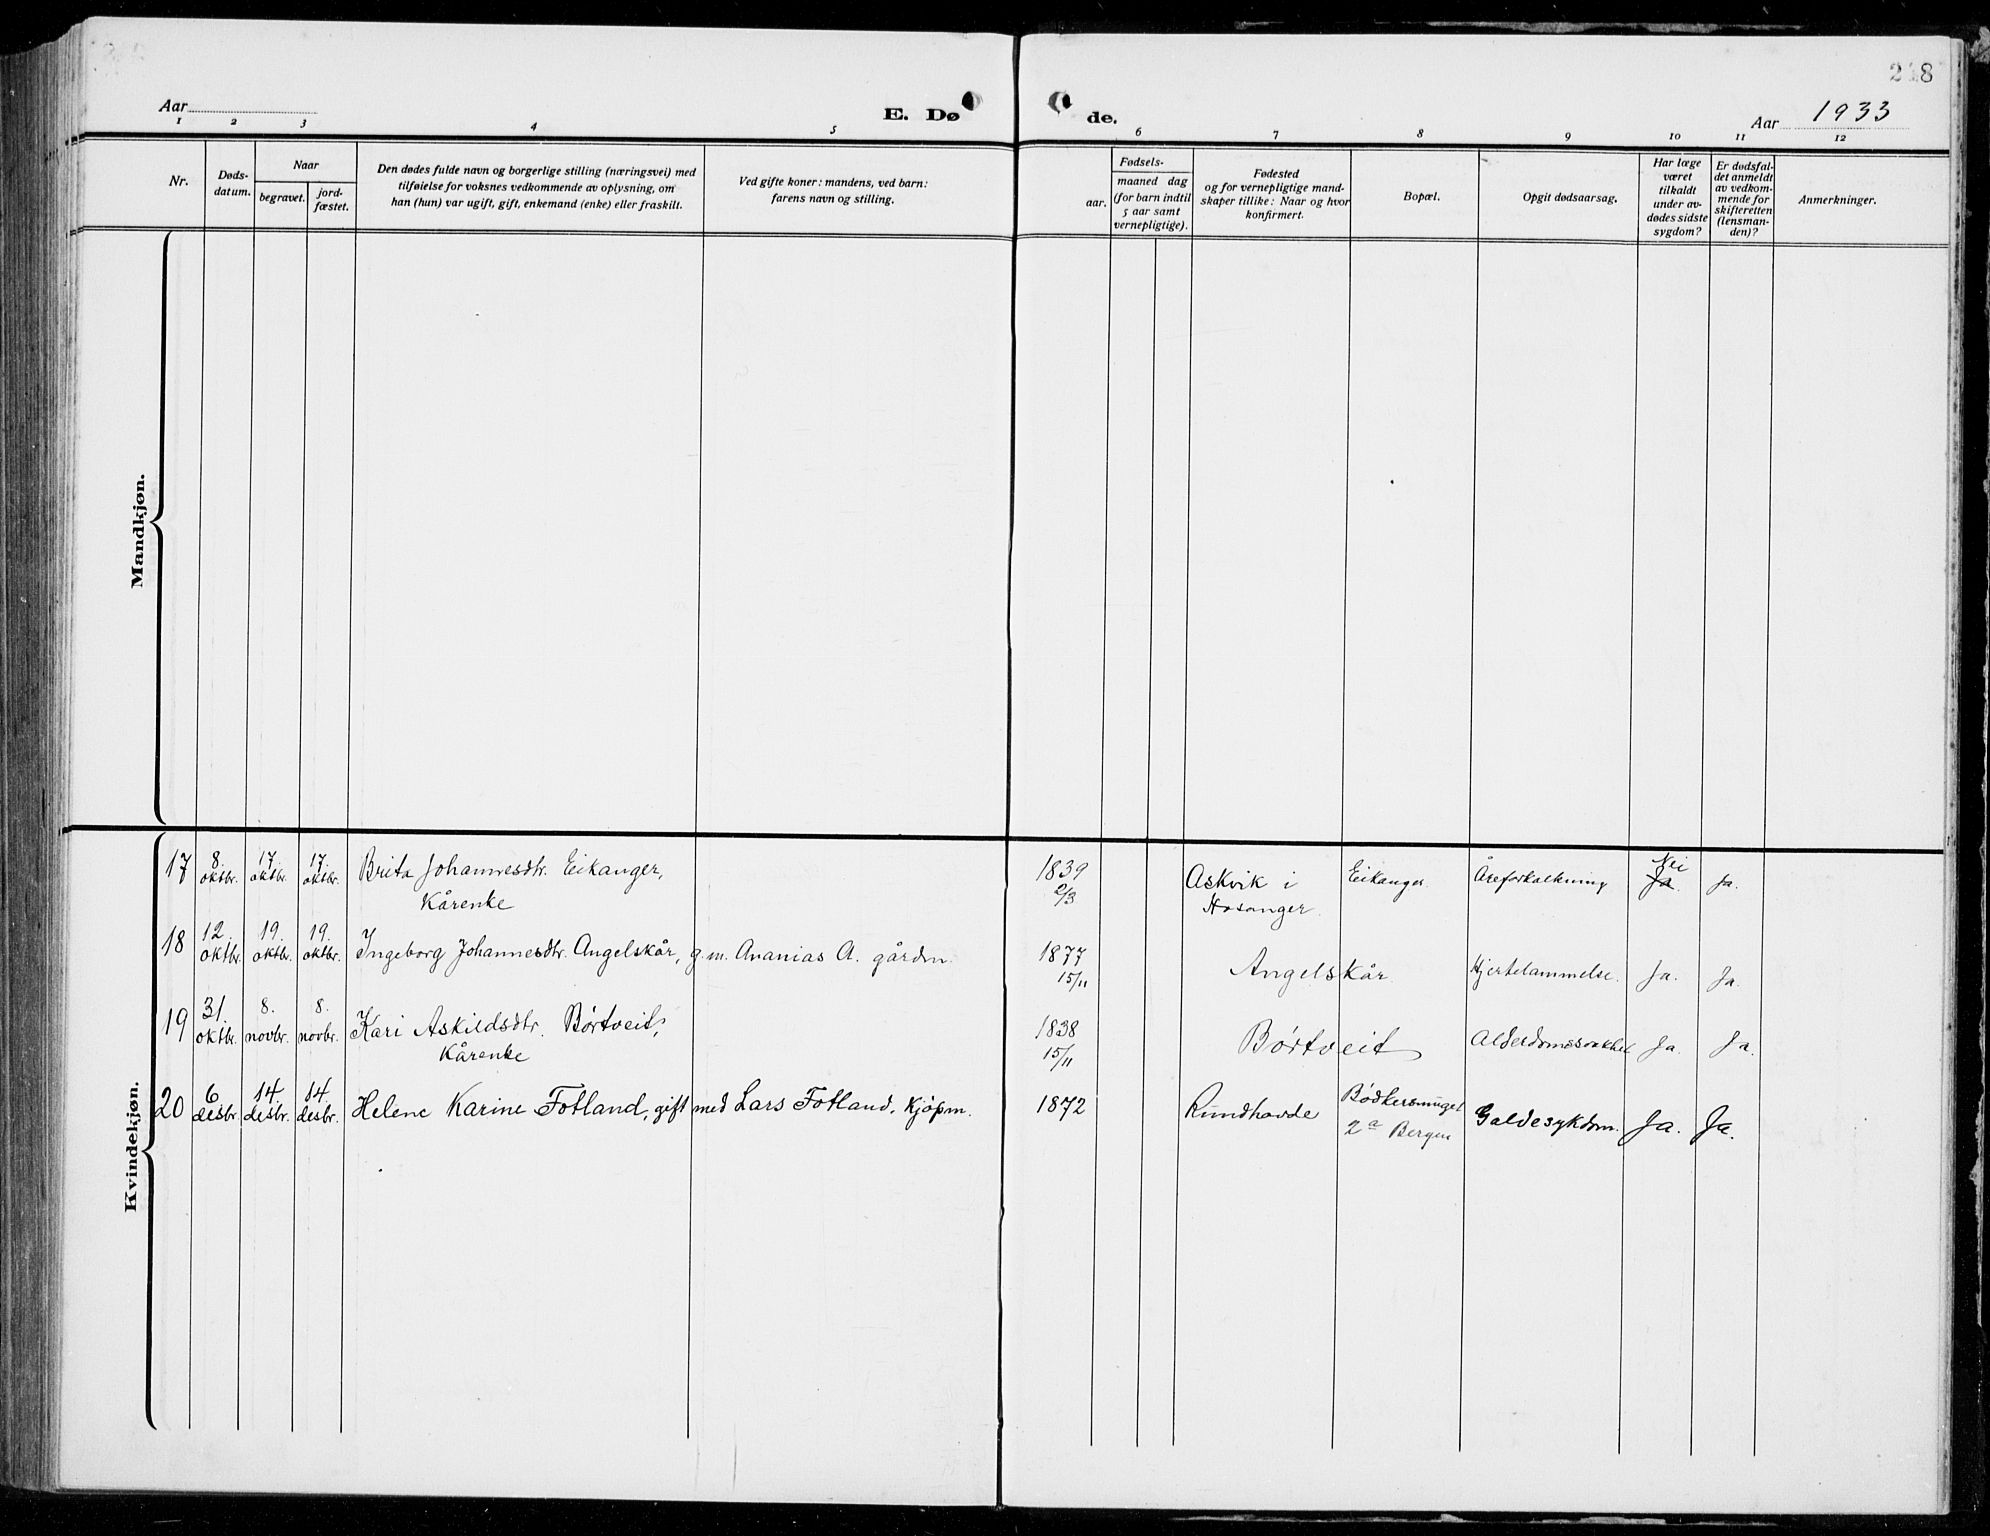 218
Aar
E. Dø
de.
Aar 1933
1 2 3 4 5 6 7 8 9 10 11 12
Nr.
Døds-
datum.
Naar
begravet.
jord-
fæstet.
Den dødes fulde navn og borgerlige stilling (næringsvei) med
tilføielse for voksnes vedkommende av oplysning, om
han (hun) var ugift, gift, enkemand (enke) eller fraskilt.
Ved gifte koner: mandens, ved barn:
farens navn og stilling.
Fødsels-
aar.
maaned dag
(for barn indtil
5 aar samt
vernepligtige).
Fødested
og for vernepligtige mand-
skaper tillike: Naar og hvor
konfirmert.
Bopæl.
Opgit dødsaarsag.
Har læge
været
tilkaldt
under av-
dødes sidste
sygdom?
Er dødsfal-
det anmeldt
av vedkom-
mende for
skifteretten
(lensman-
den)?
Anmerkninger.
Mandkjøn.
Kvindekjøn.
17 8. oktbr. 17. oktbr. 17. oktbr. Brita Johannesdtr. Eikanger, 1839 Askvik i Eikanger. Åreforkalkning Nei Ja. Ja.
Kårenke 2/3 Hosanger.
18 12. oktbr. 19. oktbr. 19. oktbr. Ingeborg Johannesdtr. Angelskår, g.m. Ananias A. gårdm. 1877 Angelskår Hjertelammelse. Ja. Ja.
15/11
19 31. oktbr. 8. novbr. 8. novbr. Kari Askildsdtr. Børtveit, 1838 Børtveit Alderdomssvakhet Ja. Ja.
Kårenke 15/11
20 6. desbr. 14. desbr. 14. desbr. Helene Karine Fotland, gift med Lars Fotland, kjøpm. 1872 Rundhovde Bødkersmuget Galdesykdom. Ja. Ja.
2a Bergen